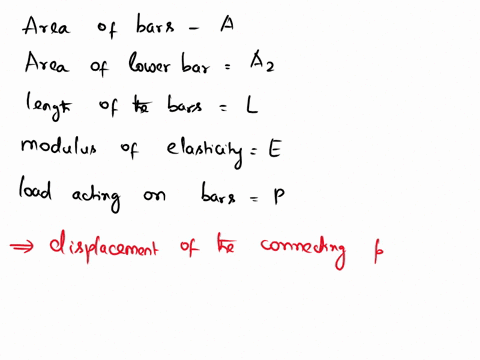 Area of bars - A
Area of lower bar = A2
length of the bars = L
modulus of elasticity = E
load acting on bars = P
⇒ displacement of the connecting p